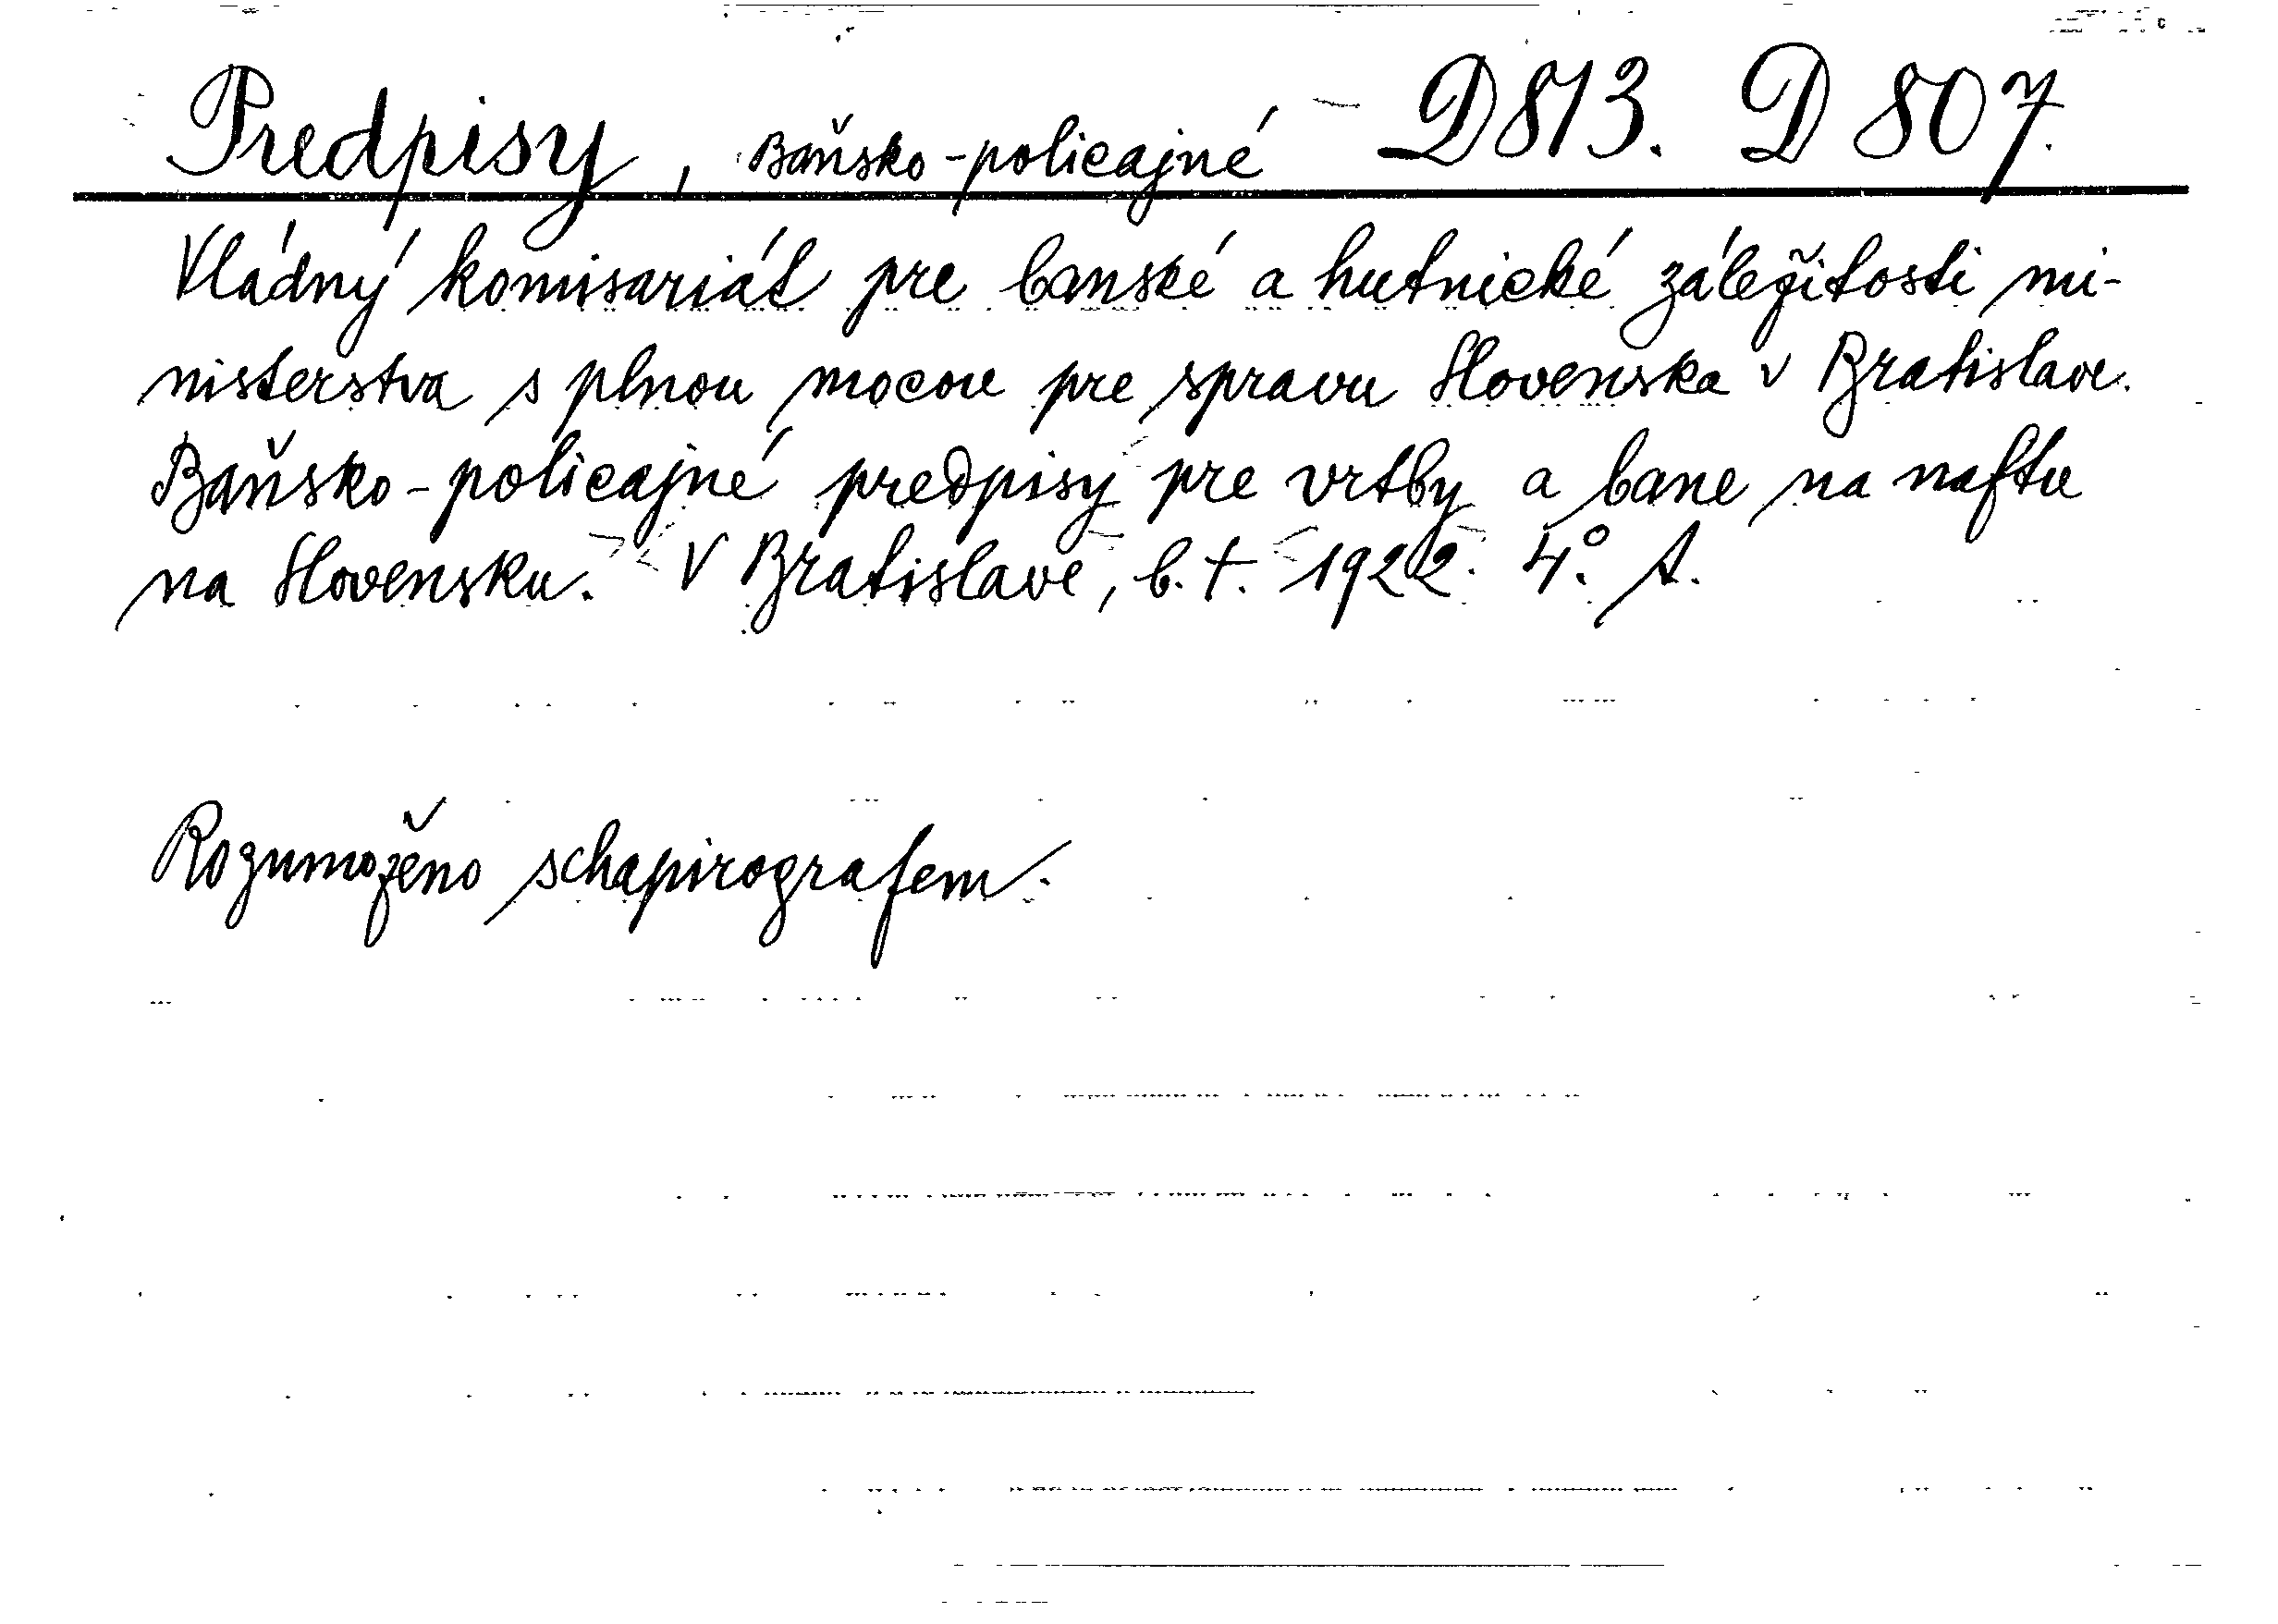 Predpisy, Baňsko-policajné D813. D 807.
Vládný komisariát pre banské a hutnické záležitosti mi-
nisterstva s plnou mocou pre spravu Slovenska v Bratislave.
Baňsko-policajné predpisy pre vrtby a bane na naftu
na Slovensku. V Bratislave, b. t. 1922. 4°. A.
Rozumoženo schapirografem.